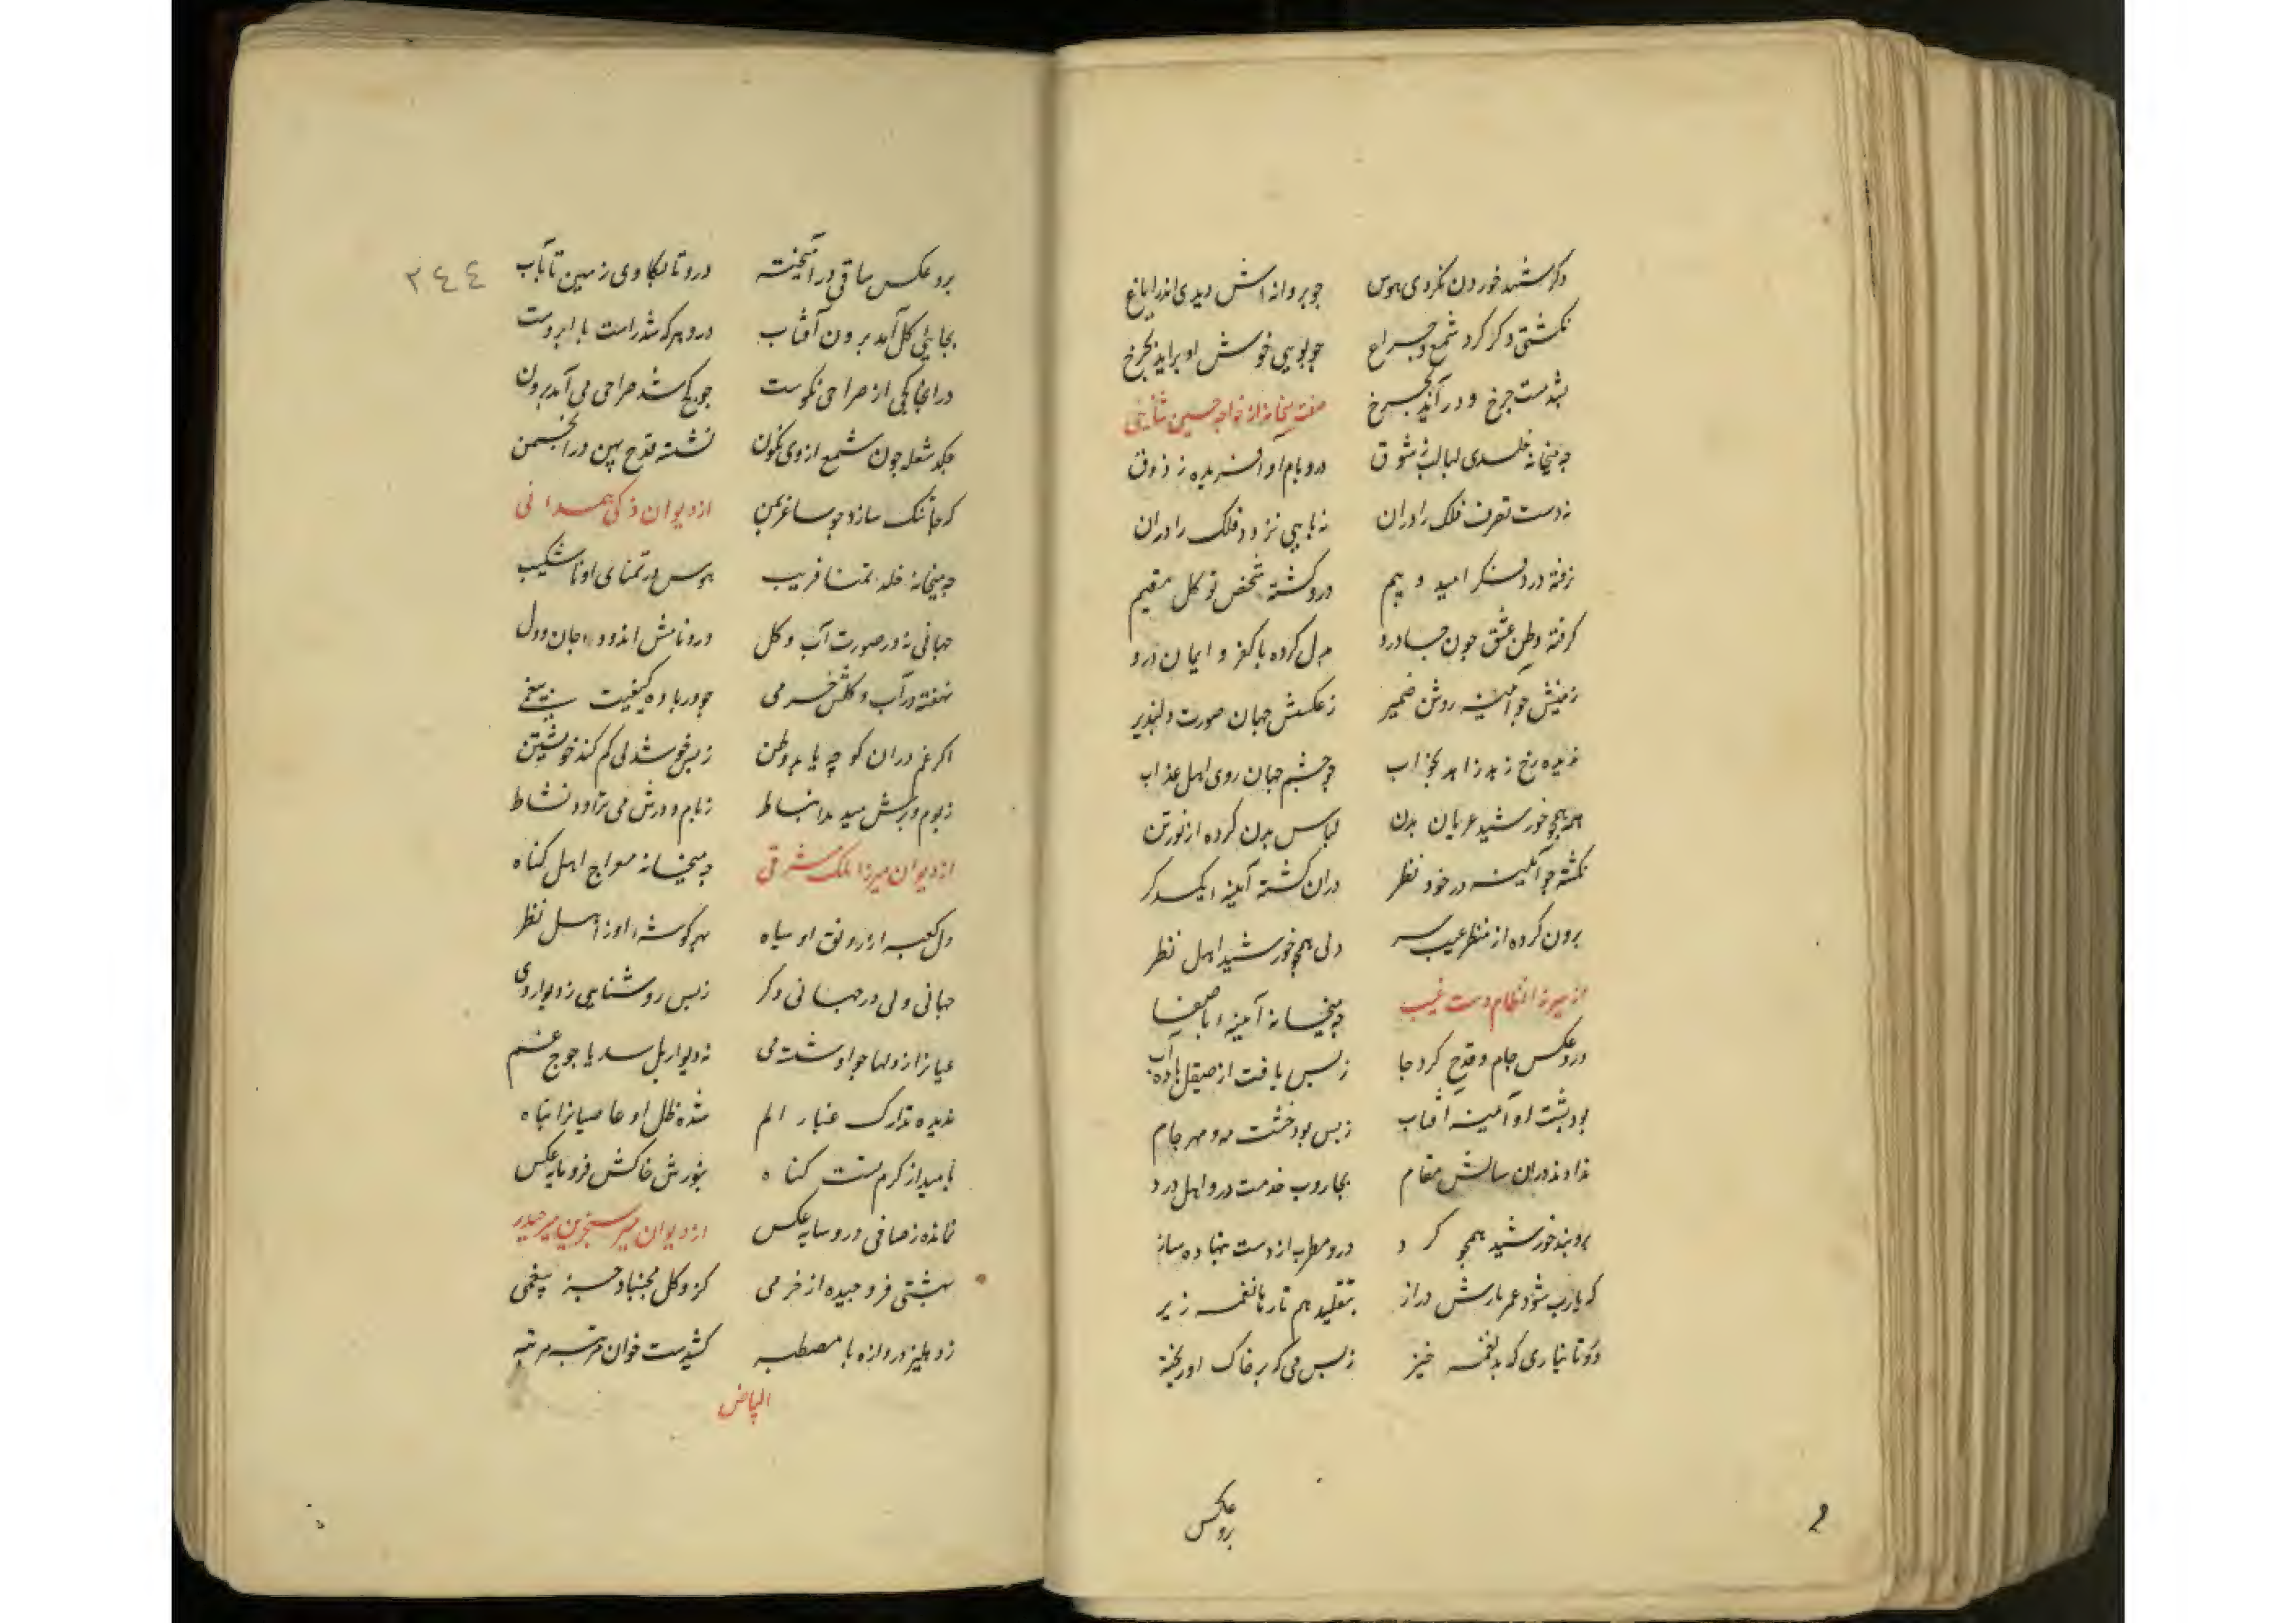 دکر شهد خوردن نکردی هوس
چو پروانه اش دیدی اندر ایاغ
نکشتی دکر کرد شمع و چراغ
چو بویی خوش او براید بچرخ
بمست چرخ و در آید بچرخ
صفت میخانه از خواجه حسین ثنایی
چه میخانه خلدی لبالب ز شوق
در و بام او آفریده ز ذوق
نه دست تصرف فلک را دران
نه پایی نزد و فلک را دران
نرفته درو فکر امید و بیم
درو کشته شخص توکل مقیم
کرفته وطن عشق چون جا درو
دل کرده با کفر و ایمان درو
زمینش چو آیینه روشن ضمیر
ز عکسش جهان صورت دلپذیر
ندیده رخ زهد زاهد بخواب
چو چشم جهان روی اهل عذاب
همه همچو خورشید عریان بدن
لباس بدن کرده از نور تن
نکشته چو آیینه در خود نظر
دران کشته آیینه یکدکر
برون کرده از منظر عیب سر
ولی همچو خورشید اهل نظر
از میرزا نظام دست غیب
چه میخانه آیینه با صفا
درو عکس جام و قدح کرد جا
ز بس یافت از صیقل باده آب
بود پشت او آیینه آفتاب
ز بس بود خشت مه و مهر جام
نداند دران سالش مقام
بجاروب خدمت درو اهل درد
برو بند خورشید همچو کرد
درو مطرب از دست ننهاده ساز
که یارب شود عمر یارش دراز
بتقلید هم تارها نغمه ریز
دو تا تباری که بد نغمه خیز
ز بس می که بر خاک او ریخته
برو عکس
برو عکس ساقی درآمیخته
درو تا بکاوی زمین تا بآب
بجایی کل آید برون آفتاب
درو هر که شد راست با ابروست
در انجا کجی از صراحی نکوست
چو کج شد صراحی می آید برون
چکد شعله چون شمع از وی نکون
نشسته قدح بین در انجمن
که جا تنک سازد چو ساغر بمن
از دیوان ذکی همدانی
چه میخانه خلد تمنا فریب
هوس در تمنای او ناشکیب
جهانی نه در صورت آب و کل
درو نامش اندوده جان و دل
نهفته در آب و کلش خرمی
چو در باده کیفیت بیغمی
اکر غم دران کوچه یابد وطن
ز بس خوشدلی کم کند خویشتن
ز بوم و برش میدمد انبساط
ز بام و درش می تراود نشاط
از دیوان میرزا ملک مشرقی
چه میخانه معراج اهل کناه
دل کعبه از رونق او سیاه
بهر کوشه او ز اهل نظر
جهانی ولی در جهانی دکر
ز بس روشنایی ز دیوار وی
عیارا ز دلها چو او شسته می
نه دیوار بل سد یاجوج غم
ندیده تدارک غبار الم
شده ظل او عاصیانرا پناه
بامید از کرم پشت کناه
بنورش خاکش فرو مایه عکس
نمانده ز صافی درو سایه عکس
از دیوان میر سنجر بن میر حیدر
بهشتی فرو چیده از خرمی
کزو کل نچیناد جز بیغمی
ز دهلیز دروازه تا مصطبه
کشیدست خوان مرتبه مرتبه
البیاض
٣٤٤